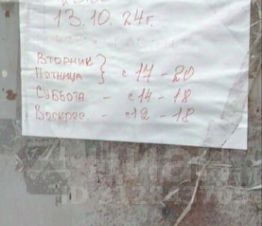 13.10.24г.
Вторник
Пятница } с 17 - 20
Суббота - с 14 - 18
Воскрес - с 12 - 18